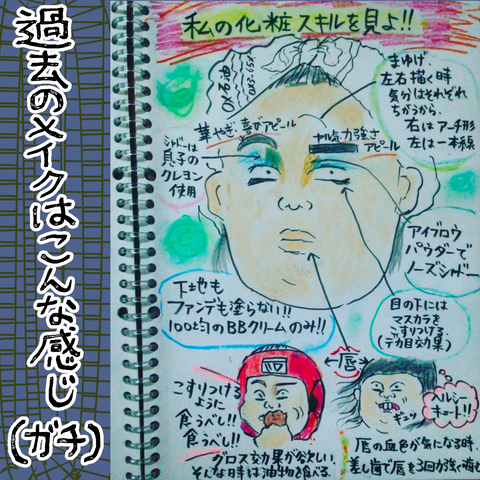 過去のメイクはこんな感じ(ガチ)
私の化粧スキルを見よ!!
まゆげ
左右描く時
気分はそれぞれ
ちがうから、
右はアーチ形
左は一本線
華やぎ・喜びアピール
ヤル気・力強さ
アピール
シャドーは
息子の
クレヨン
使用
アイブロウ
パウダーで
ノーズシャドー
下地も
ファンデも塗らない!!
100均のBBクリームのみ!!
目の下には
マスカラを
こすりつける
(デカ目効果)
唇
こすりつける
ように
食うべし!!
食うべし!!
グロス効果が欲しい、
そんな時は油物食べる。
ギュッ
ヘルシー
キュート!!
唇の血色が気になる時、
差し歯で唇を3回力強く噛む